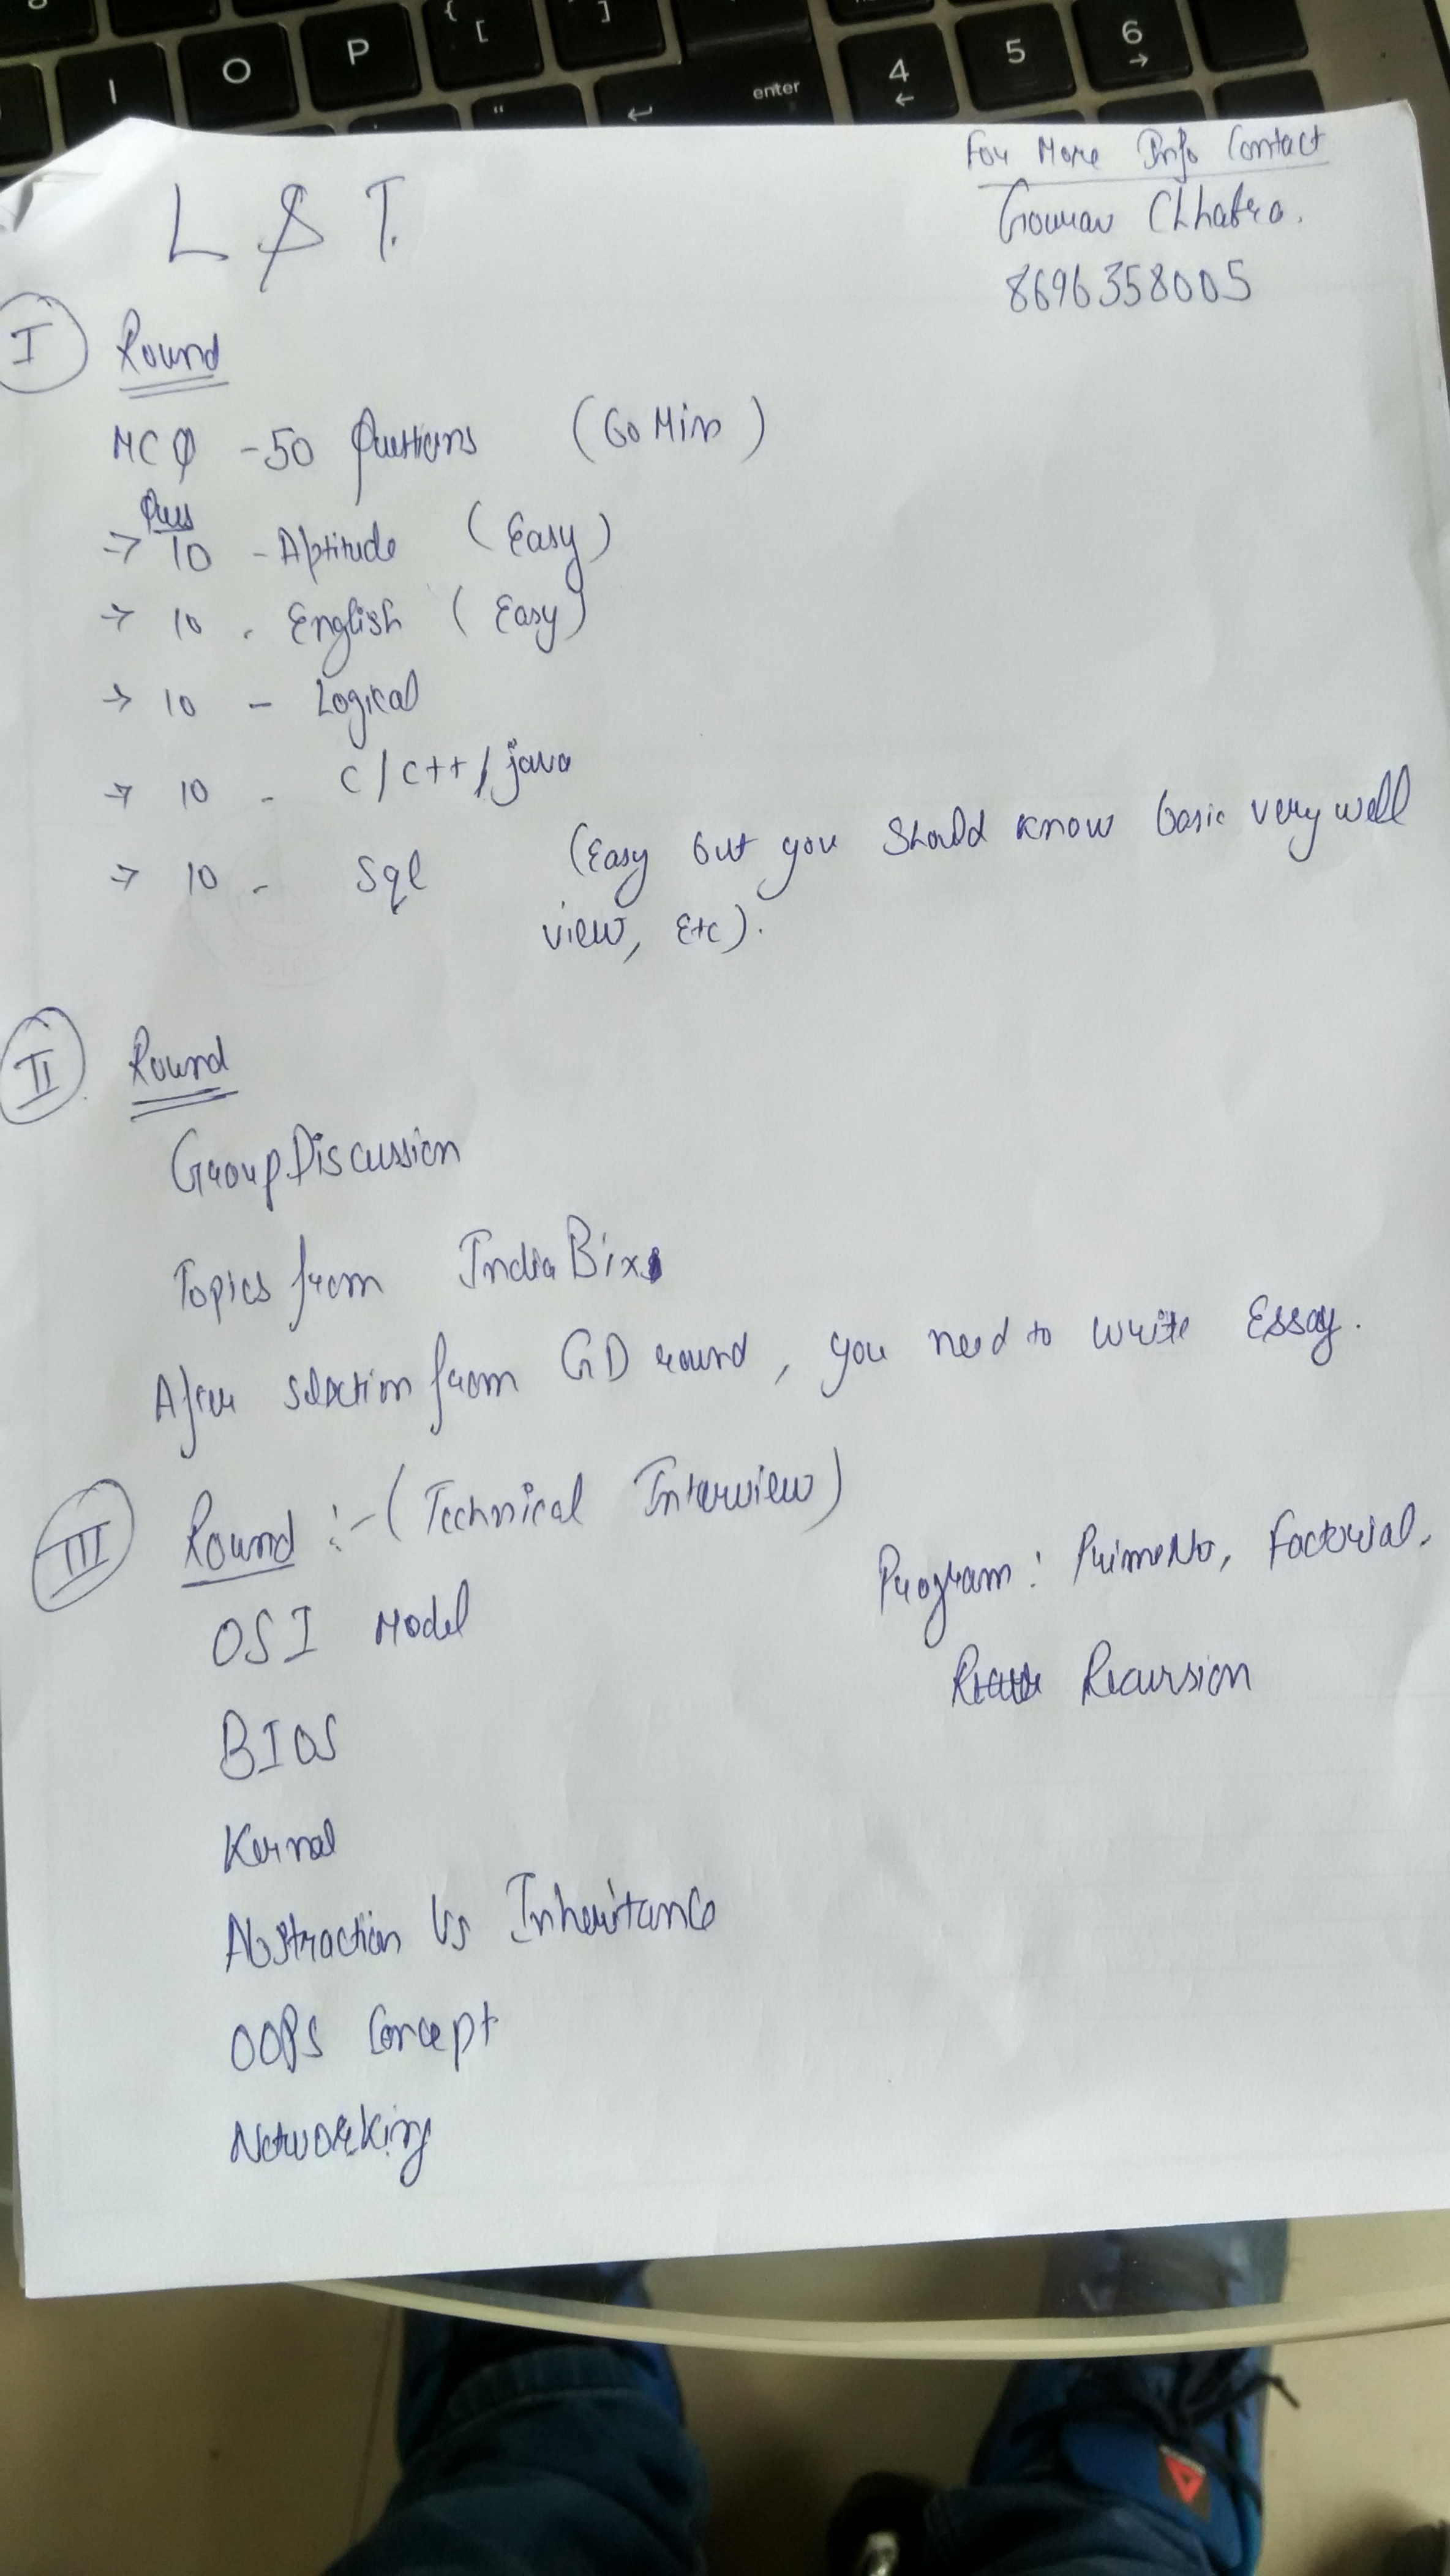 O P { [ ] enter 4 5 6
I
L & T.
For More Info Contact
Gourav Chhabra.
8696358005
I Round
MCQ - 50 Questions (60 Min)
Ques
→ 10 - Aptitude (Easy)
→ 10 - English (Easy)
→ 10 - Logical
→ 10 - C/C++/java
→ 10 - Sql (Easy but you should know basic very well
view, Etc).
II Round
Group Discussion
Topics from IndiaBix
After selection from GD round, you need to write Essay.
III Round :- (Technical Interview)
Program: PrimeNo, Factorial,
Recursion
OSI Model
BIOS
Kernal
Abstraction Vs Inheritance
OOPS Concept
Networking